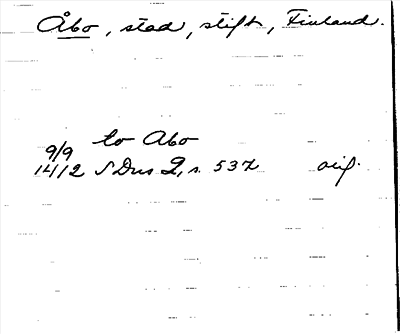 Åbo, stad, stift, Finland.
to Abo
9/9
14/12 SDns 2, s. 532 orig.